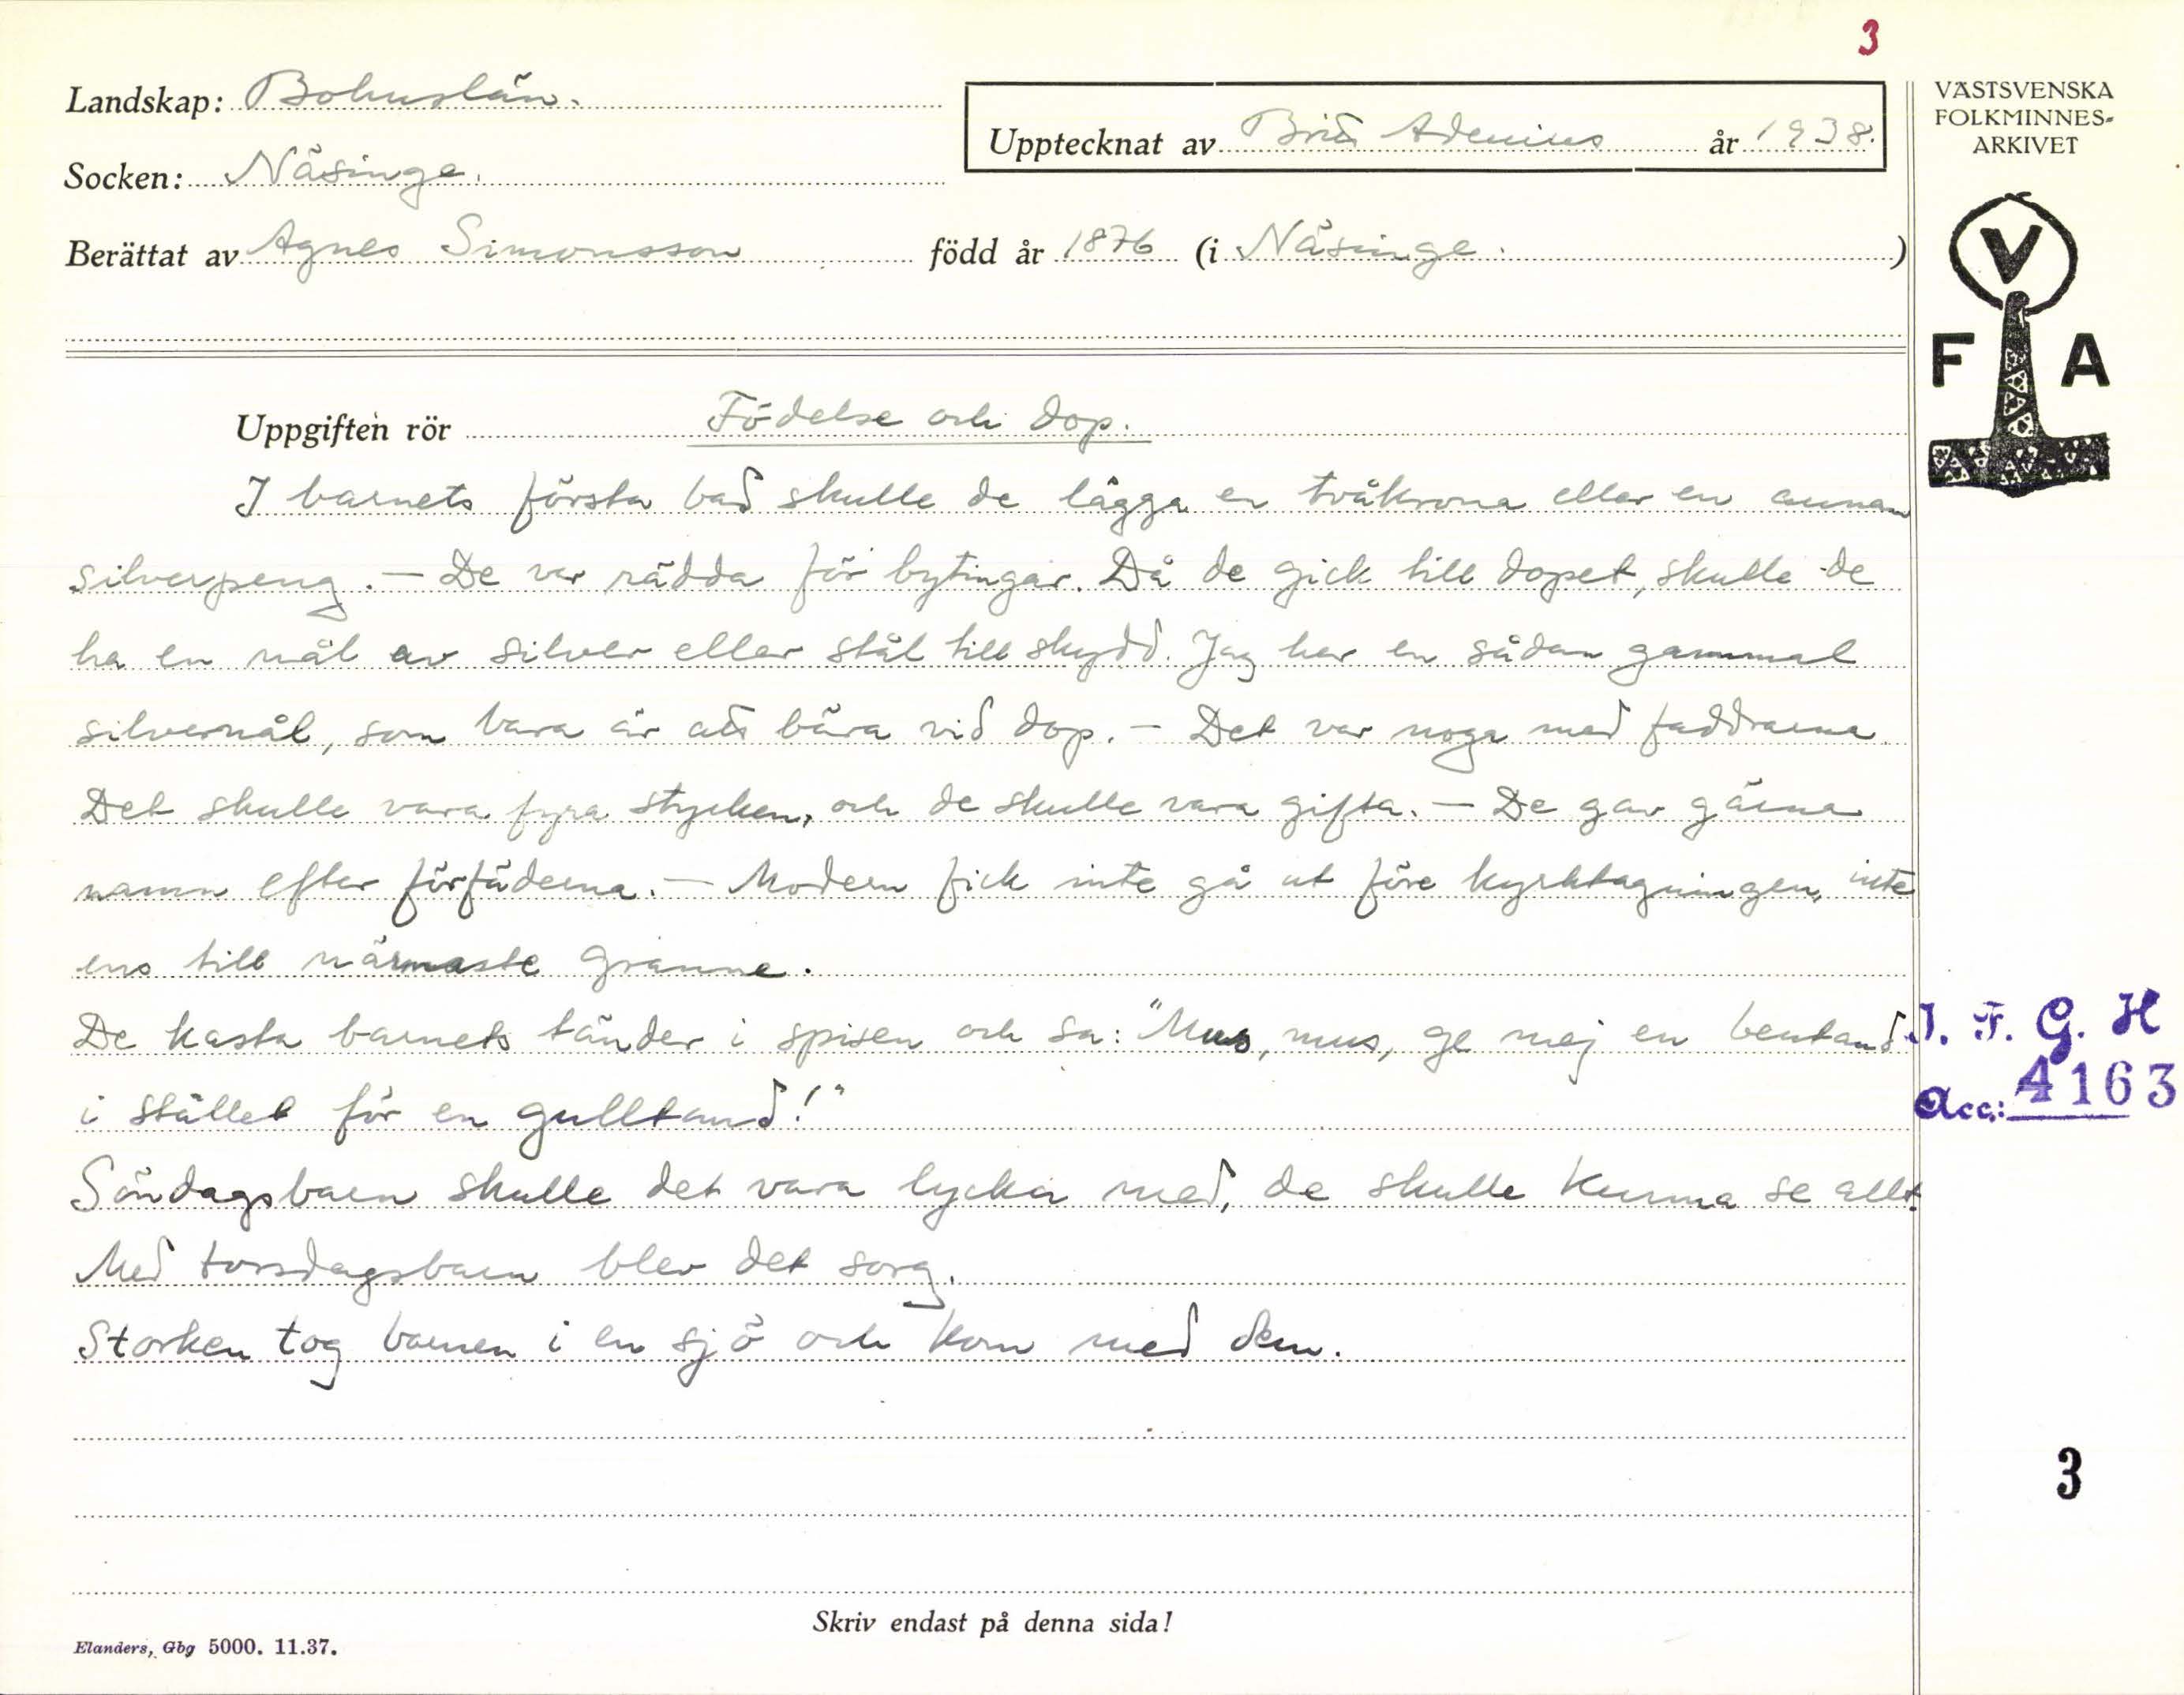 3
Landskap: Bohuslän.
Upptecknat av Brita Adenius år 1938.
Socken: Näsinge.
Berättat av Agnes Simonsson född år 1876 (i Näsinge.)
VÄSTSVENSKA
FOLKMINNES-
ARKIVET
V
F A
Uppgiften rör Födelse och dop.
I barnets första bad skulle de lägga en tvåkrona eller en annan
silverpeng. — De var rädda för bytingar. Då de gick till dopet, skulle de
ha en nål av silver eller stål till skydd. Jag har en sådan gammal
silvernål, som bara är att bära vid dop. — Det var noga med faddrarna.
Det skulle vara fyra stycken, och de skulle vara gifta. — De gav gärna
namn efter förfäderna. — Modern fick inte gå ut före kyrktagningen, inte
ens till närmaste granne.
De kasta barnets tänder i spisen och sa: "Mus, mus, ge mej en bentand
i stället för en gulltand!"
Söndagsbarn skulle det vara lycka med, de skulle kunna se allt.
Med torsdagsbarn blev det sorg.
Storken tog barnen i en sjö och kom med dem.
I. F. G. H
Acc: 4163
3
Skriv endast på denna sida!
Elanders, Gbg 5000. 11.37.